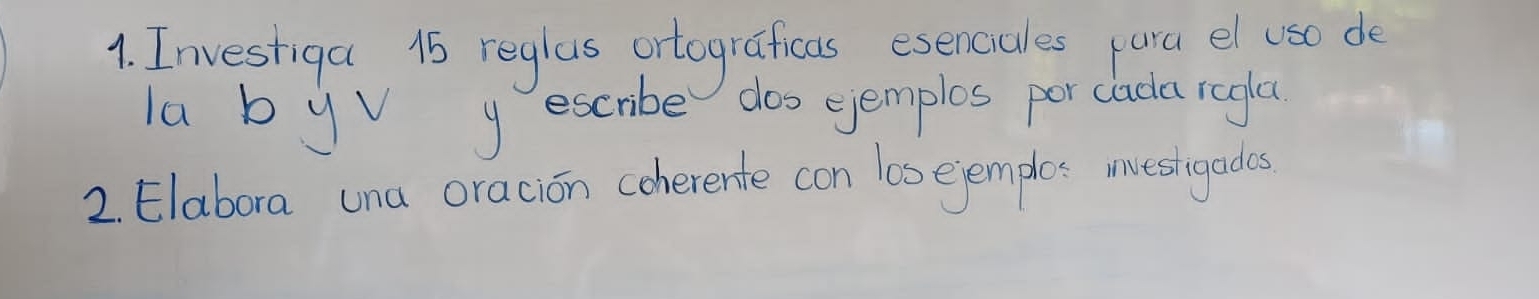 1. Investiga 15 reglas ortográficas esenciales para el uso de
la b y v y escribe dos ejemplos por cada regla.
2. Elabora una oración coherente con los ejemplos investigados.